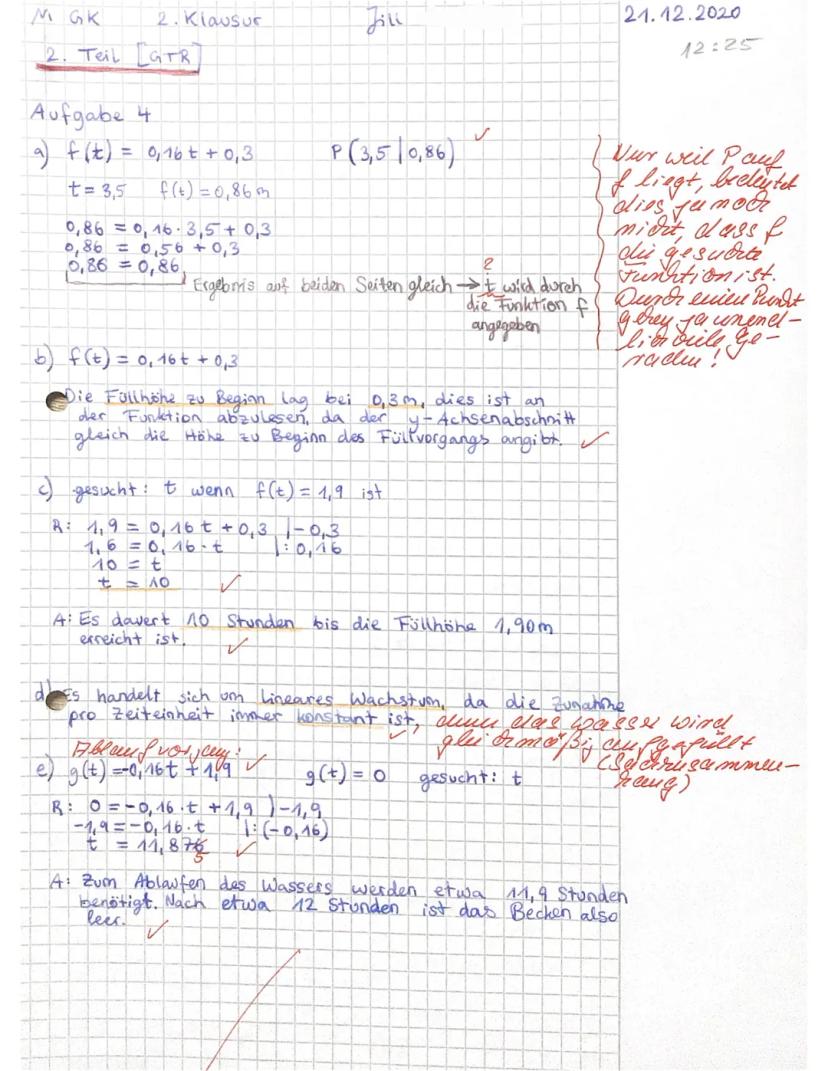 M GK 2. Klausur Jili 21.12.2020
12:25
2. Teil [GTR]
Aufgabe 4
a) f(t) = 0,16t + 0,3 P(3,5|0,86) ✓
t = 3,5 f(t) = 0,86m
0,86 = 0,16 · 3,5 + 0,3
0,86 = 0,56 + 0,3
0,86 = 0,86
Ergebnis auf beiden Seiten gleich → t wird durch
?
die Funktion f
angegeben
Nur weil P auf
f liegt, bedeutet
dies ja noch
nicht, dass f
die gesuchte
Funktion ist.
Durch einen Punkt
gehen ja unend-
lich viele Ge-
raden!
b) f(t) = 0,16t + 0,3
Die Füllhöhe zu Beginn lag bei 0,3m, dies ist an
der Funktion abzulesen, da der y-Achsenabschnitt
gleich die Höhe zu Beginn des Füllvorgangs angibt. ✓
c) gesucht: t wenn f(t) = 1,9 ist
R: 1,9 = 0,16t + 0,3 |-0,3
1,6 = 0,16 · t |:0,16
10 = t
t = 10 ✓
A: Es dauert 10 Stunden bis die Füllhöhe 1,90m
erreicht ist. ✓
d) Es handelt sich um lineares Wachstum, da die Zunahme
pro Zeiteinheit immer konstant ist, denn das Wasser wird
✓ gleichmäßig aufgefüllt
(Sachzusammen-
hang)
Ablaufvorgang: ✓
e) g(t) = -0,16t + 1,9 g(t) = 0 gesucht: t
R: 0 = -0,16 · t + 1,9 |-1,9
-1,9 = -0,16 · t |:(-0,16)
t = 11,876 ✓
5
A: Zum Ablaufen des Wassers werden etwa 11,9 Stunden
benötigt. Nach etwa 12 Stunden ist das Becken also
leer. ✓